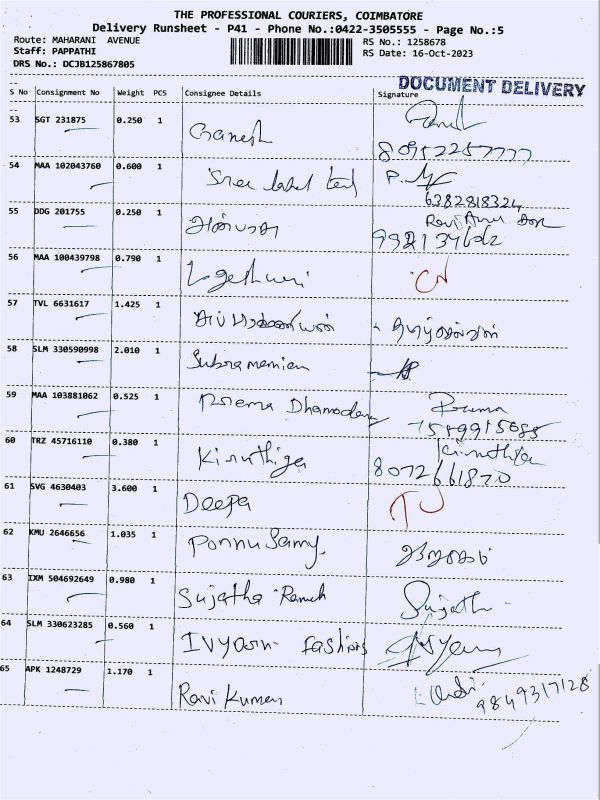 THE PROFESSIONAL COURIERS, COIMBATORE
Delivery Runsheet - P41 - Phone No.:0422-3505555 - Page No.:5
Route: MAHARANI AVENUE RS No.: 1258678
Staff: PAPPATHI RS Date: 16-Oct-2023
DRS No.: DCJB125867805
DOCUMENT DELIVERY
S No Consignment No Weight PCS Consignee Details Signature
53 SGT 231875 0.250 1 Ganesh
54 MAA 102043760 0.600 1 Sree label tex P.
6382818324
55 DDG 201755 0.250 1
56 MAA 100439798 0.790 1
57 TVL 6631617 1.425 1
58 SLM 330590998 2.010 1 Subramanian
59 MAA 103881062 0.525 1 Prema
60 TRZ 45716110 0.380 1 Kiruthiga Kiruthiga
8072661870
61 SVG 4630403 3.600 1 Deepa
62 KMU 2646656 1.035 1 Ponnusamy
63 IXM 504692649 0.980 1 Sujatha Ramesh Sujatha
64 SLM 330623285 0.560 1 Fashions
65 APK 1248729 1.170 1 Ravi Kumar 9849317128